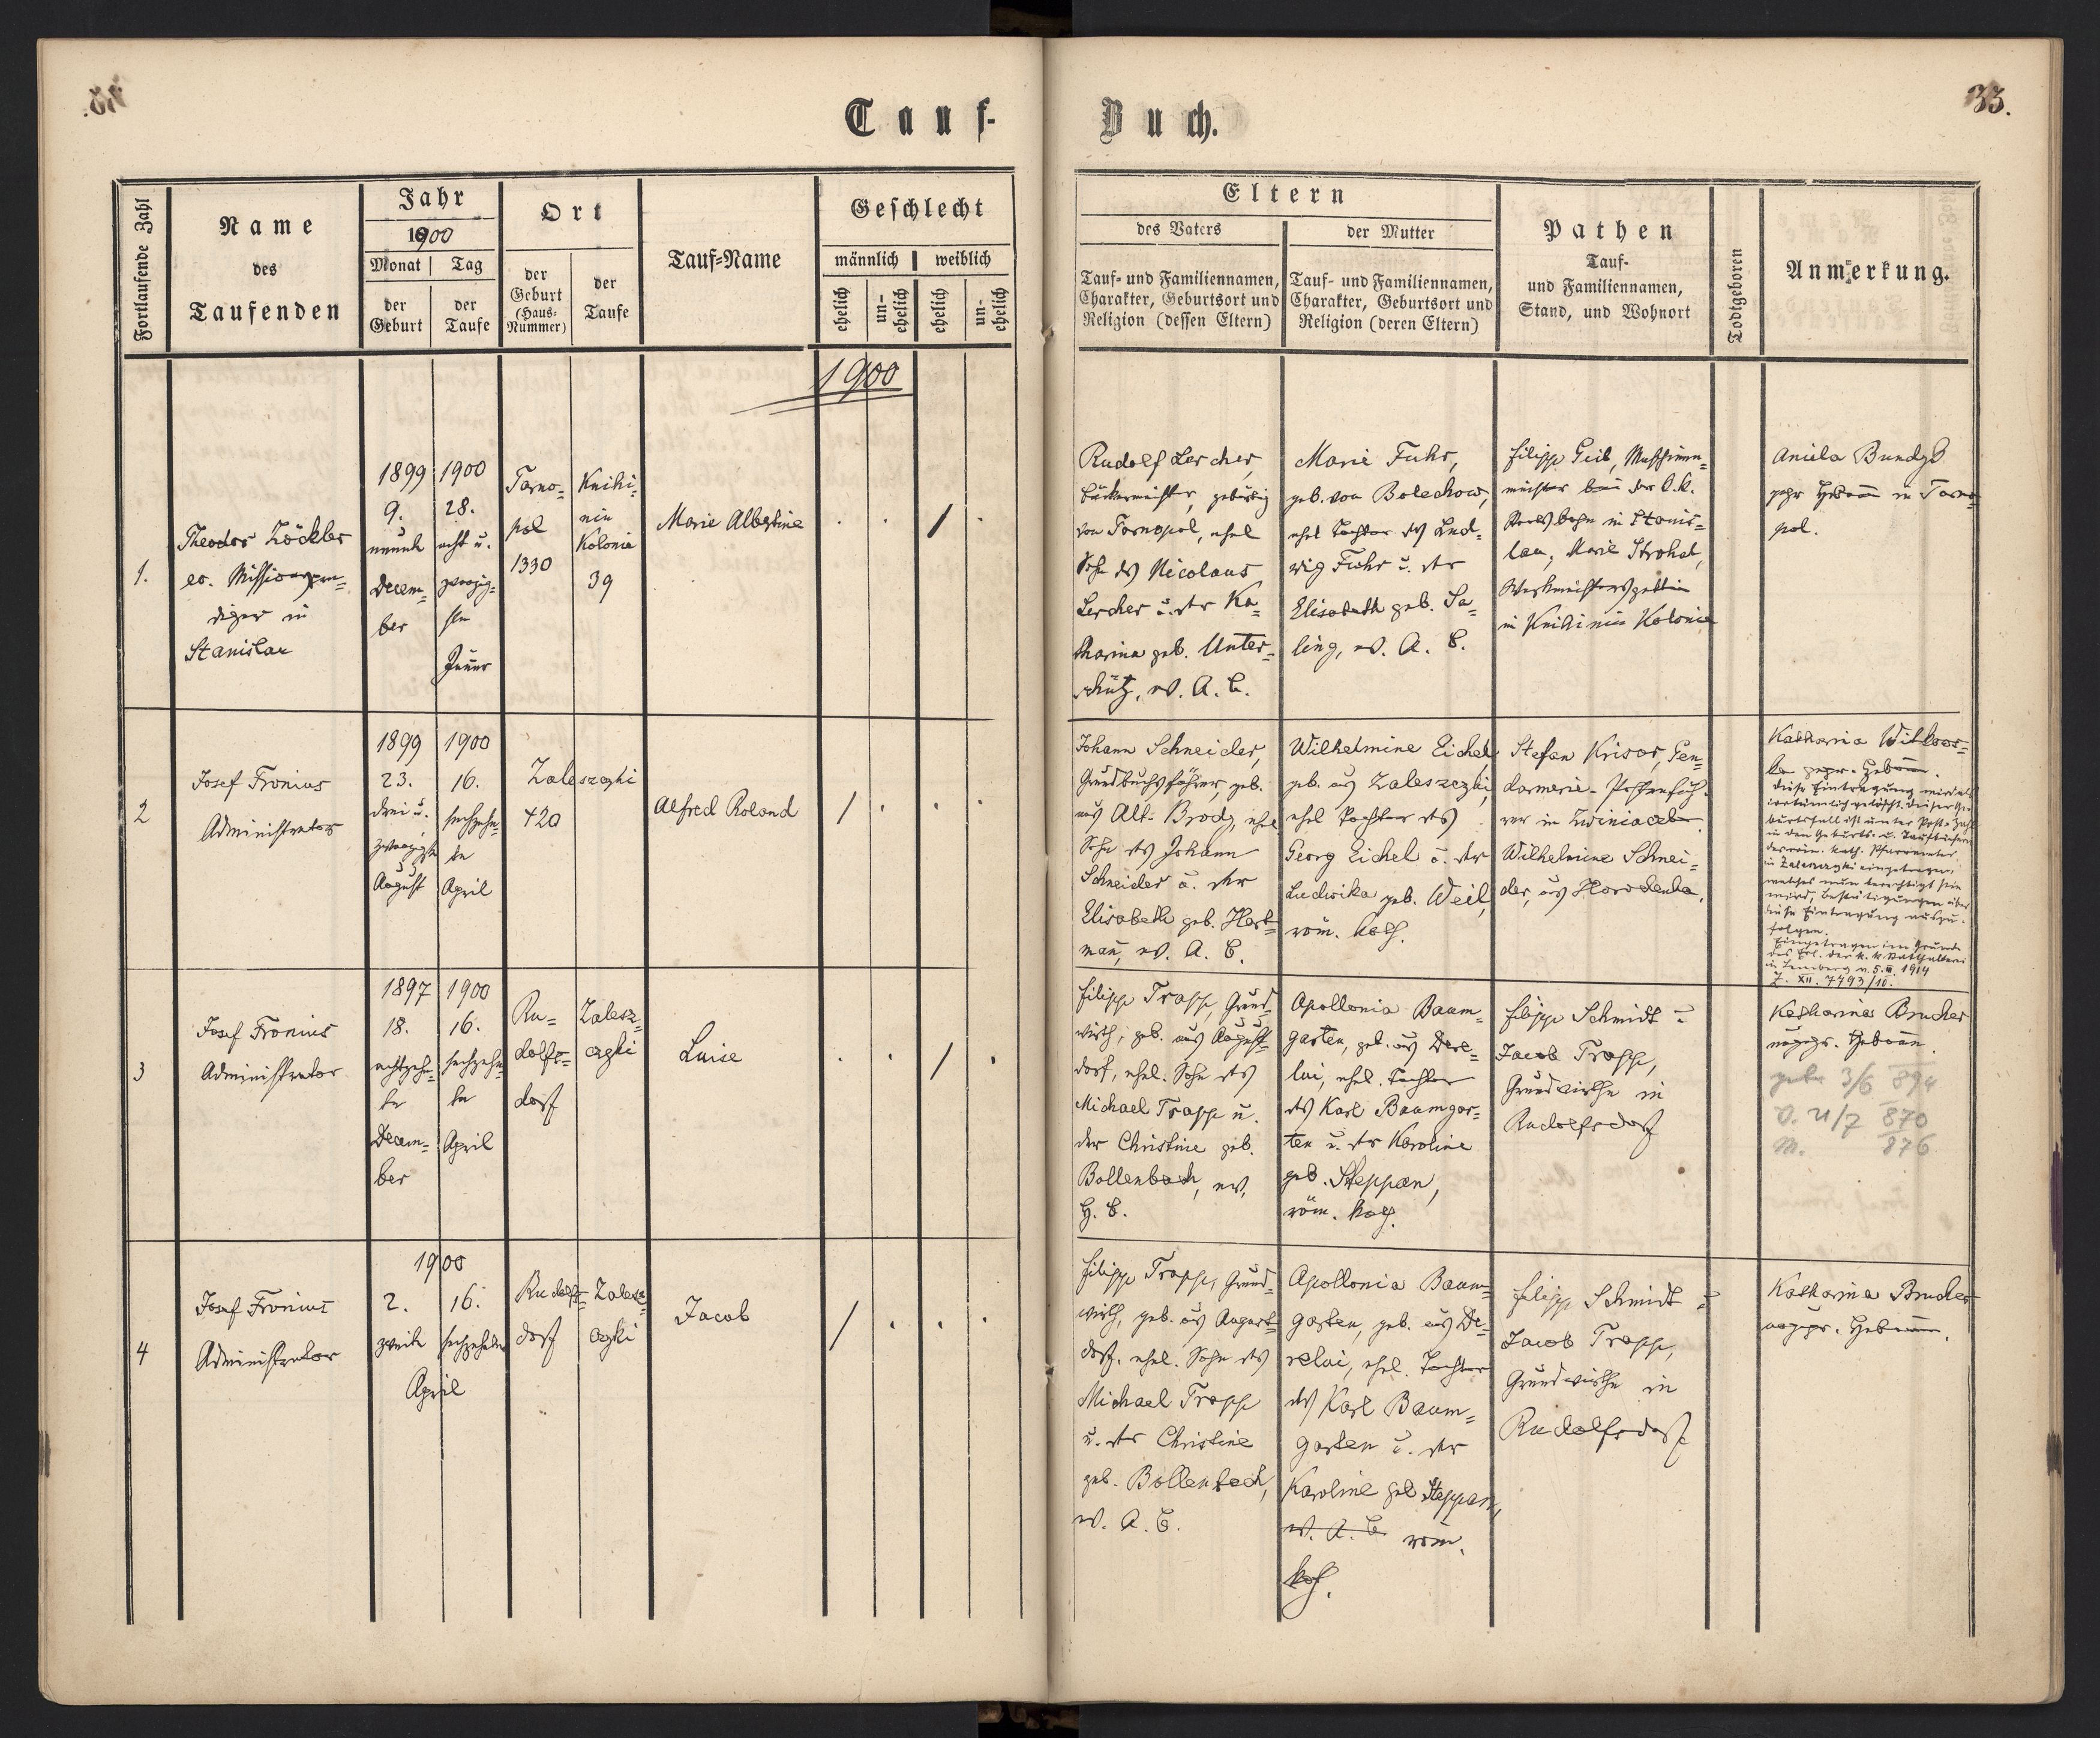 33.
Tauf-Buch.
Fortlaufende Zahl
Name
des
Taufenden
Jahr
1900
Monat | Tag
der
Geburt
der
Taufe
Ort
der
Geburt
(Haus-
Nummer)
der
Taufe
Tauf=Name
Geschlecht
männlich | weiblich
ehelich
un-
ehelich
ehelich
un-
ehelich
Eltern
des Vaters
Tauf- und Familiennamen,
Charakter, Geburtsort und
Religion (dessen Eltern)
der Mutter
Tauf- und Familiennamen,
Charakter, Geburtsort und
Religion (deren Eltern)
Pathen
Tauf-
und Familiennamen,
Stand, und Wohnort
Todtgeboren
Anmerkung.
1900
1.
Theodor Zöckler
ev. Missionspre=
diger in
Stanislau
1899
9.
neunte
Decem=
ber
1900
28.
acht u.
zwanzig=
ste
Jänner
Tarno=
pol
1330
Knihi=
nin
Kolonie
39
Marie Albertine
/
Rudolf Lercher,
Bäckermeister, gebürtig
von Tarnopol, ehel
Sohn des Nicolaus
Lercher u. der Ka=
tharina geb. Unter=
schütz, ev. A. C.
Marie Fuhr,
geb. von Bolechow,
ehel Tochter des Lud=
wig Fuhr u. der
Elisabeth geb. Sa=
ling, ev. A. C.
Filipp Geib, Maschinen=
meister bei der k. k.
Staatsbahn in Stanis=
lau, Marie Strohal,
Werkmeistersgattin
in Knihinin Kolonie
Aniela
gepr Hebamme in Tarno=
pol.
2
Josef Fronius
Administrator
1899
23.
drei u.
zwanzigste
August
1900
16.
sechzehn=
te
April
Zaleszczyki
420
Alfred Roland
/
Johann Schneider,
Grundbuchsführer, geb.
aus Alt-Brody, ehel
Sohn des Johann
Schneider u. der
Elisabeth geb. Hart=
mann, ev. A. C.
Wilhelmine Eichel,
geb. aus Zaleszczyki,
ehel Tochter des
Georg Eichel u. der
Ludwika geb. Weil,
röm. kath.
Stefan Krisar, Gen=
darmerie-Postenfüh=
rer in
Wilhelmine Schnei=
der, aus Horodenka.
Katharina Witkows=
ka gepr. Hebamme.
Diese Eintragung wird als
irrtümlich gelöscht. Dieser Ge=
burtsfall ist unter Post-Zahl
in den Geburts- u. Taufbüchern
des röm. kath. Pfarramtes
in Zaleszczyki eingetragen,
welches nun berechtigt sein
wird, Bestätigungen über
diese Eintragung auszu=
folgen.
Eingetragen im Grunde
des Erl. der k. k. Statthalterei
in Lemberg v. 5. III. 1914
Z. XII. 7493/10.
3
Josef Fronius
Administrator
1897
18.
achtzehn=
te
Decem=
ber
1900
16.
sechzehn=
te
April
Ru=
dolfs=
dorf
Zalesz=
czyki
Luise
/
Filipp Trapp, Grund=
wirth, geb. aus August=
dorf, ehel. Sohn des
Michael Trapp u.
der Christine geb.
Bollenbach, ev.
H. C.
Apollonia Baum=
garten, geb. aus Dere=
lui, ehel. Tochter
des Karl Baumgar=
ten u. der Karoline
geb. Steppan,
röm. kath.
Filipp Schmidt u
Jacob Trapp,
Grundwirthe in
Rudolfsdorf
Katharina Brucher
ungepr. Hebamme.
3/6 894
V. 21/7 870
M. 876
4
Josef Fronius
Administrator
1900
2.
zweite
16.
sechzehnte
April
Rudolfs=
dorf
Zalesz=
czyki
Jacob
/
Filipp Trapp, Grund=
wirth, geb. aus August=
dorf, ehel. Sohn des
Michael Trapp
u. der Christine
geb. Bollenbach,
ev. A. C.
Apollonia Baum=
garten, geb. aus De=
relui, ehel. Tochter
des Karl Baum=
garten u. der
Karoline geb Steppan,
ev. A. C. röm.
kath.
Filipp Schmidt u
Jacob Trapp,
Grundwirthe in
Rudolfsdorf
Katharina Brucher
ungepr. Hebamme.